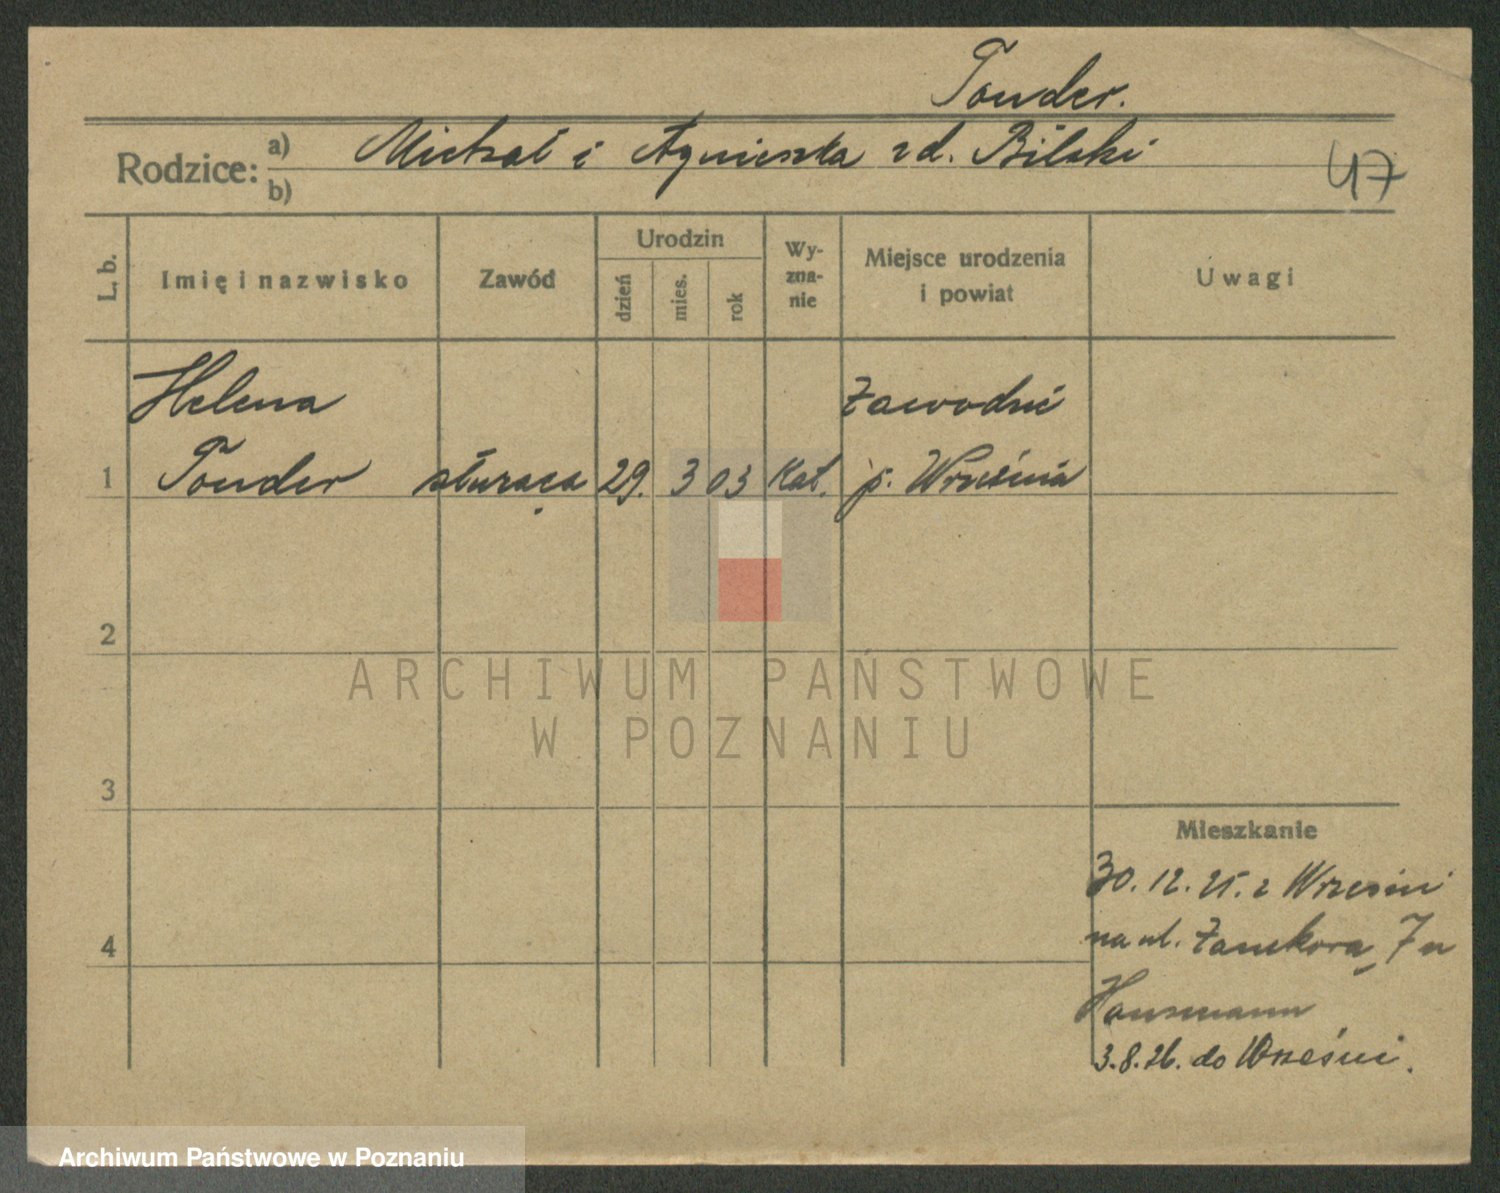 Tonder.
Rodzice: a) Michał i Agnieszka z d. Bilski
b)
47
L. b.
Imię i nazwisko
Zawód
Urodzin
dzień
mies.
rok
Wy-
zna-
nie
Miejsce urodzenia
i powiat
Uwagi
Helena
Zawodzie
1 Tonder służąca 29. 3 03 Kat. p. Września
2
3
4
Mieszkanie
30. 12. 25. z Wrześni
na ul. Zamkową 7 u
Hausmann
3. 8. 26. do Wrześni.
ARCHIWUM PAŃSTWOWE
W POZNANIU
Archiwum Państwowe w Poznaniu